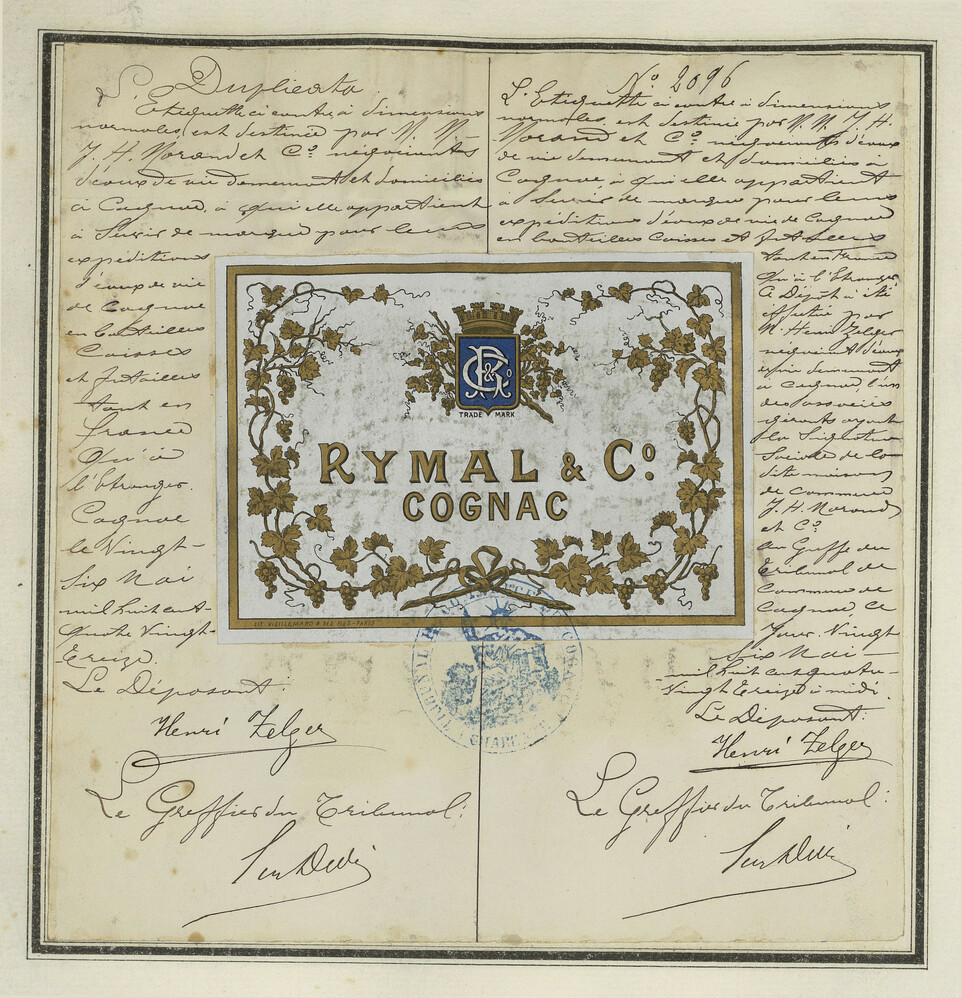 Duplicata
L'Etiquette ci contre, à dimensions
normales, est destinée par M. M.
J. H. Morand et Cº négociants
d'eaux de vie demeurant et domiciliés
à Cognac, à qui elle appartient
à servir de marque pour leurs
expéditions
d'eaux de vie
de Cognac
en bouteilles
Caisses
et futailles
tant en
france
qu'à
l'étranger.
Cognac
le Vingt-
six Mai
mil huit cent-
quatre Vingt-
treize.
Le Déposant:
Henri Zelger
Le Greffier du Tribunal:
Nº 2096
L'Etiquette ci contre à dimensions
normales, est destinée par M. M. J. H.
Morand et Cº négociants d'eaux
de vie demeurant et domiciliés à
Cognac, à qui elle appartient
à servir de marque pour leurs
expéditions d'eaux de vie de Cognac
en bouteilles Caisses et futailles
tant en France
qu'à l'Etranger
Ce Dépôt a été
effectué par
M. Henri Zelger
négociant d'eaux
de vie demeurant
à Cognac l'un
des associés
gérants ayant
la Signature
Sociale de la
dite maison
de commerce
J. H. Morand
et Cº
au Greffe du
tribunal de
Commerce de
Cognac ce
Jour Vingt
six Mai
mil huit cent quatre-
Vingt treize à midi.
Le Déposant:
Henri Zelger
Le Greffier du Tribunal:
R & Cº
TRADE MARK
RYMAL & Cº
COGNAC
LIT. VIEILLEMARD & SES FILS - PARIS
TRIBUNAL
COGNAC
CHARENTE